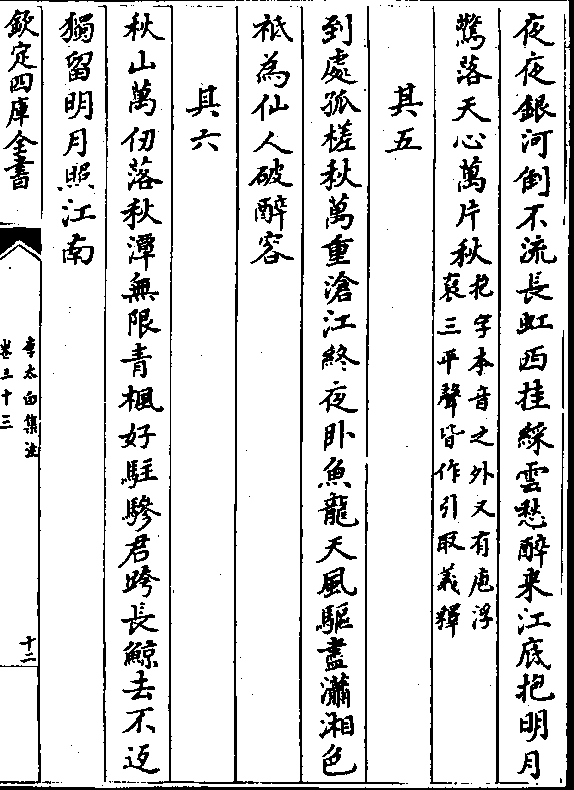 夜夜銀河倒不流長虹西挂綵雲愁醉来江底抱明月
驚落天心萬片秋抱字本音之外又有庖浮
裒三平聲皆作引取義釋
其五
到處孤槎秋萬重滄江終夜卧魚龍天風驅盡瀟湘色
祗為仙人破醉容
其六
秋山萬仞落秋潭無限青楓好駐驂君跨長鯨去不返
獨留明月照江南
欽定四庫全書
李太白集注
卷三十三
十二